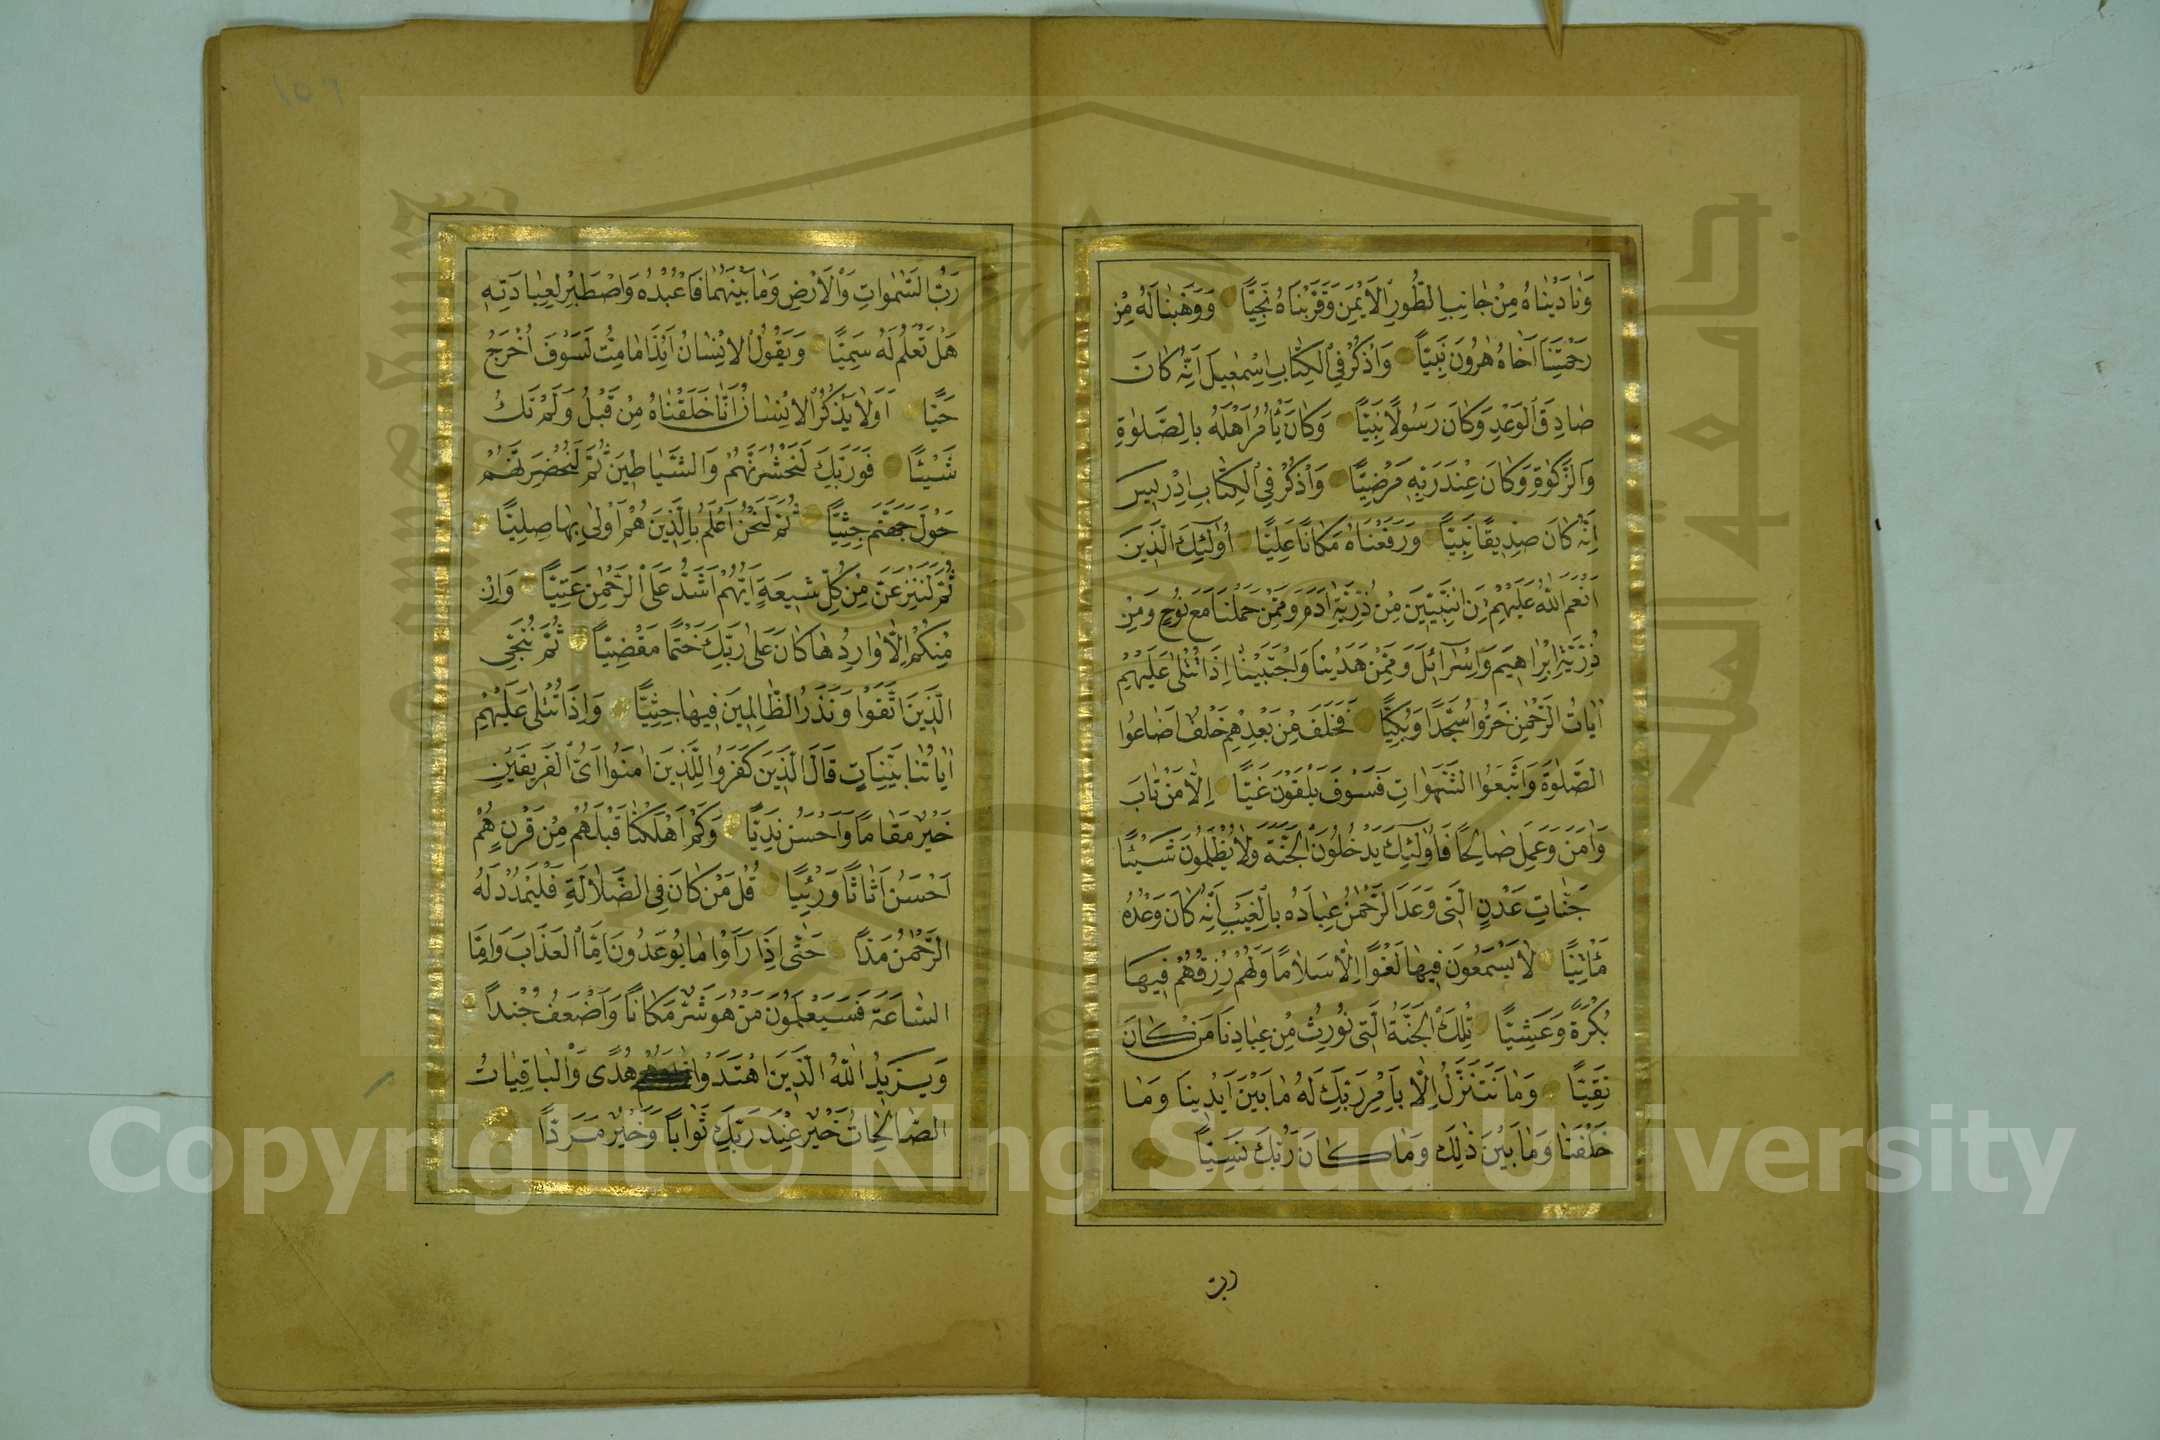 وَنَادَيْنَاهُ مِنْ جَانِبِ الطُّورِ الْاَيْمَنِ وَقَرَّبْنَاهُ نَجِيًّا وَوَهَبْنَا لَهُ مِنْ
رَحْمَتِنَا اَخَاهُ هٰرُونَ نَبِيًّا وَاذْكُرْ فِي الْكِتَابِ اِسْمٰعِيلَ اِنَّهُ كَانَ
صَادِقَ الْوَعْدِ وَكَانَ رَسُولًا نَبِيًّا وَكَانَ يَأْمُرُ اَهْلَهُ بِالصَّلٰوةِ
وَالزَّكٰوةِ وَكَانَ عِنْدَ رَبِّهِ مَرْضِيًّا وَاذْكُرْ فِي الْكِتَابِ اِدْرِيسَ
اِنَّهُ كَانَ صِدِّيقًا نَبِيًّا وَرَفَعْنَاهُ مَكَانًا عَلِيًّا اُولٰئِكَ الَّذِينَ
اَنْعَمَ اللّٰهُ عَلَيْهِمْ مِنَ النَّبِيِّينَ مِنْ ذُرِّيَّةِ اٰدَمَ وَمِمَّنْ حَمَلْنَا مَعَ نُوحٍ وَمِنْ
ذُرِّيَّةِ اِبْرَاهِيمَ وَاِسْرَائِلَ وَمِمَّنْ هَدَيْنَا وَاجْتَبَيْنَا اِذَا تُتْلٰى عَلَيْهِمْ
اٰيَاتُ الرَّحْمٰنِ خَرُّوا سُجَّدًا وَبُكِيًّا فَخَلَفَ مِنْ بَعْدِهِمْ خَلْفٌ اَضَاعُوا
الصَّلٰوةَ وَاتَّبَعُوا الشَّهَوَاتِ فَسَوْفَ يَلْقَوْنَ غَيًّا اِلَّا مَنْ تَابَ
وَاٰمَنَ وَعَمِلَ صَالِحًا فَاُولٰئِكَ يَدْخُلُونَ الْجَنَّةَ وَلَا يُظْلَمُونَ شَيْئًا
جَنَّاتِ عَدْنٍ الَّتِى وَعَدَ الرَّحْمٰنُ عِبَادَهُ بِالْغَيْبِ اِنَّهُ كَانَ وَعْدُهُ
مَأْتِيًّا لَا يَسْمَعُونَ فِيهَا لَغْوًا اِلَّا سَلَامًا وَلَهُمْ رِزْقُهُمْ فِيهَا
بُكْرَةً وَعَشِيًّا تِلْكَ الْجَنَّةُ الَّتِى نُورِثُ مِنْ عِبَادِنَا مَنْ كَانَ
تَقِيًّا وَمَا نَتَنَزَّلُ اِلَّا بِاَمْرِ رَبِّكَ لَهُ مَا بَيْنَ اَيْدِينَا وَمَا
خَلْفَنَا وَمَا بَيْنَ ذٰلِكَ وَمَا كَانَ رَبُّكَ نَسِيًّا
رب
١٥٦
رَبُّ السَّمٰوَاتِ وَالْاَرْضِ وَمَا بَيْنَهُمَا فَاعْبُدْهُ وَاصْطَبِرْ لِعِبَادَتِهِ
هَلْ تَعْلَمُ لَهُ سَمِيًّا وَيَقُولُ الْاِنْسَانُ اَئِذَا مَا مِتُّ لَسَوْفَ اُخْرَجُ
حَيًّا اَوَلَا يَذْكُرُ الْاِنْسَانُ اَنَّا خَلَقْنَاهُ مِنْ قَبْلُ وَلَمْ تَكُ
شَيْئًا فَوَرَبِّكَ لَنَحْشُرَنَّهُمْ وَالشَّيَاطِينَ ثُمَّ لَنُحْضِرَنَّهُمْ
حَوْلَ جَهَنَّمَ جِثِيًّا ثُمَّ لَنَحْنُ اَعْلَمُ بِالَّذِينَ هُمْ اَوْلٰى بِهَا صِلِيًّا
ثُمَّ لَنَنْزِعَنَّ مِنْ كُلِّ شِيعَةٍ اَيُّهُمْ اَشَدُّ عَلَى الرَّحْمٰنِ عَتِيًّا وَاِنْ
مِنْكُمْ اِلَّا وَارِدُهَا كَانَ عَلٰى رَبِّكَ حَتْمًا مَقْضِيًّا ثُمَّ نُنَجِّى
الَّذِينَ اتَّقَوْا وَنَذَرُ الظَّالِمِينَ فِيهَا جِثِيًّا وَاِذَا تُتْلٰى عَلَيْهِمْ
اٰيَاتُنَا بَيِّنَاتٍ قَالَ الَّذِينَ كَفَرُوا لِلَّذِينَ اٰمَنُوا اَىُّ الْفَرِيقَيْنِ
خَيْرٌ مَقَامًا وَاَحْسَنُ نَدِيًّا وَكَمْ اَهْلَكْنَا قَبْلَهُمْ مِنْ قَرْنٍ هُمْ
اَحْسَنُ اَثَاثًا وَرِئْيًا قُلْ مَنْ كَانَ فِى الضَّلَالَةِ فَلْيَمْدُدْ لَهُ
الرَّحْمٰنُ مَدًّا حَتّٰى اِذَا رَاَوْا مَا يُوعَدُونَ اِمَّا الْعَذَابَ وَاِمَّا
السَّاعَةَ فَسَيَعْلَمُونَ مَنْ هُوَ شَرٌّ مَكَانًا وَاَضْعَفُ جُنْدًا
وَيَزِيدُ اللّٰهُ الَّذِينَ اهْتَدَوْا هُدًى وَالْبَاقِيَاتُ
الصَّالِحَاتُ خَيْرٌ عِنْدَ رَبِّكَ ثَوَابًا وَخَيْرٌ مَرَدًّا
Copyright © King Saud University